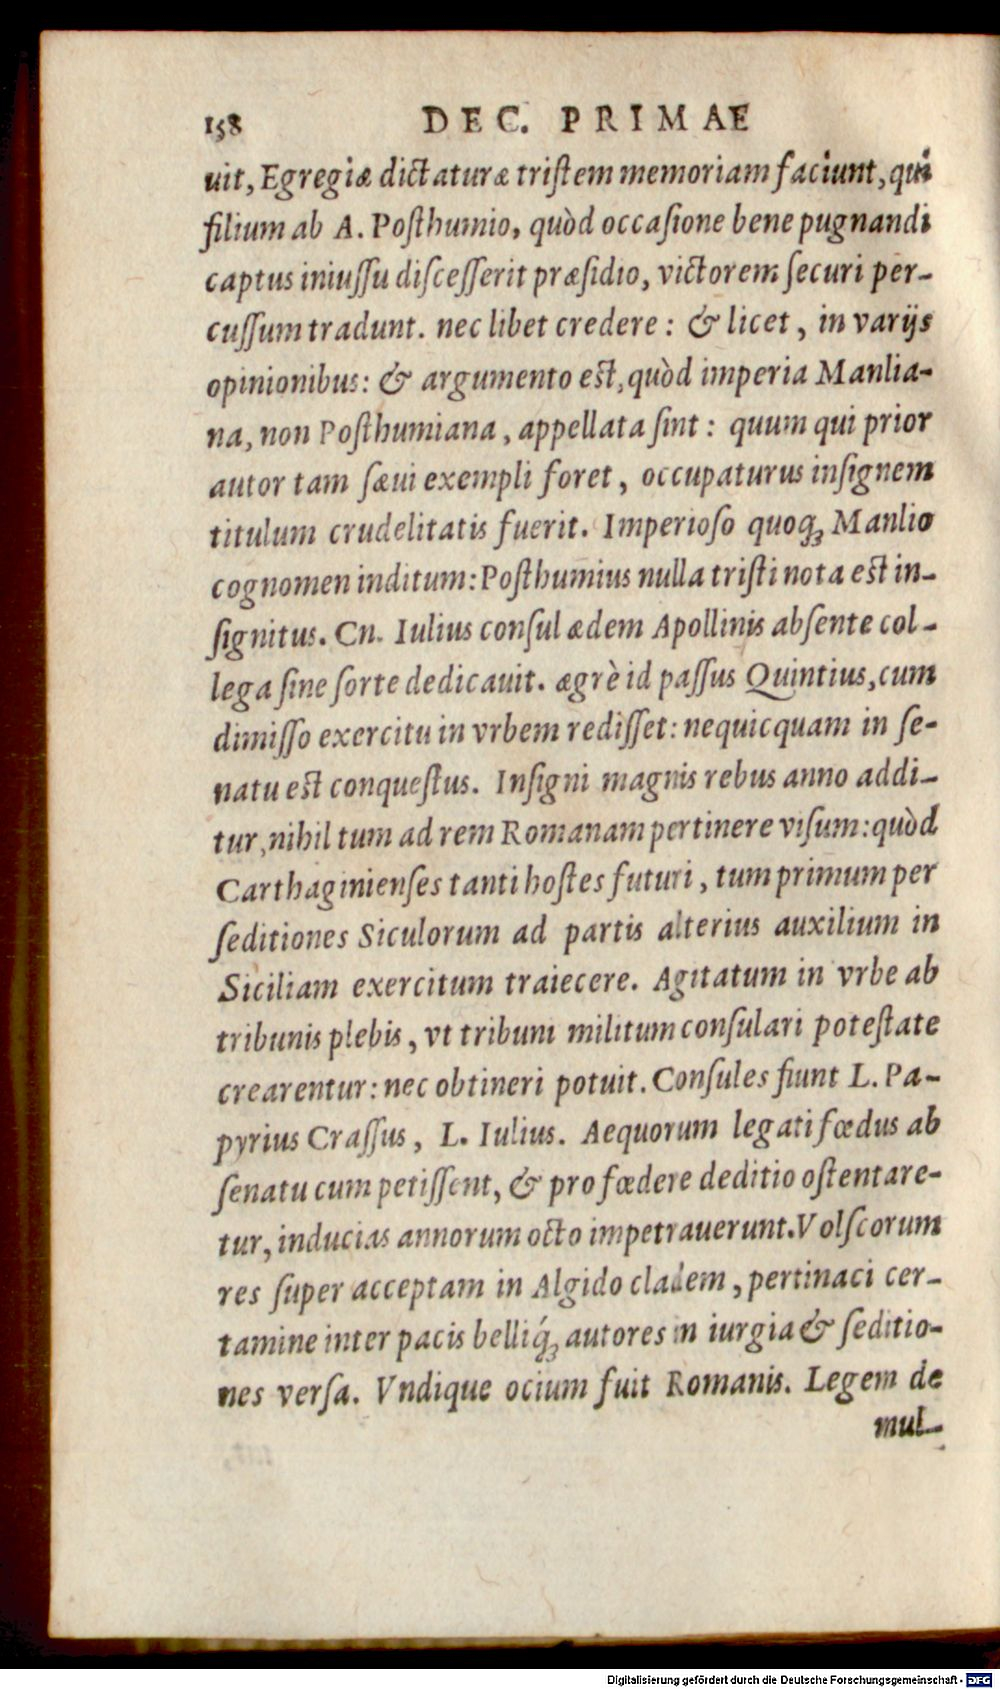 158 DEC. PRIMAE
uit, Egregiæ dictaturæ tristem memoriam faciunt, qui
filium ab A. Posthumio, quòd occasione bene pugnandi
captus iniussu discesserit præsidio, victorem securi per-
cussum tradunt. nec libet credere: & licet, in varijs
opinionibus: & argumento est, quòd imperia Manlia-
na, non Posthumiana, appellata sint: quum qui prior
autor tam sæui exempli foret, occupaturus insignem
titulum crudelitatis fuerit. Imperioso quoqꝫ Manlio
cognomen inditum: Posthumius nulla tristi nota est in-
signitus. Cn. Iulius consul ædem Apollinis absente col-
lega sine sorte dedicauit. ægrè id passus Quintius, cum
dimisso exercitu in vrbem redisset: nequicquam in se-
natu est conquestus. Insigni magnis rebus anno addi-
tur, nihil tum ad rem Romanam pertinere visum: quòd
Carthaginienses tanti hostes futuri, tum primum per
seditiones Siculorum ad partis alterius auxilium in
Siciliam exercitum traiecere. Agitatum in vrbe ab
tribunis plebis, vt tribuni militum consulari potestate
crearentur: nec obtineri potuit. Consules fiunt L. Pa-
pyrius Crassus, L. Iulius. Aequorum legati fœdus ab
senatu cum petissent, & pro fœdere deditio ostentare-
tur, inducias annorum octo impetrauerunt. Volscorum
res super acceptam in Algido cladem, pertinaci cer-
tamine inter pacis belliq́ꝫ autores in iurgia & seditio-
nes versa. Vndique ocium fuit Romanis. Legem de
mul-
Digitalisierung gefördert durch die Deutsche Forschungsgemeinschaft - DFG